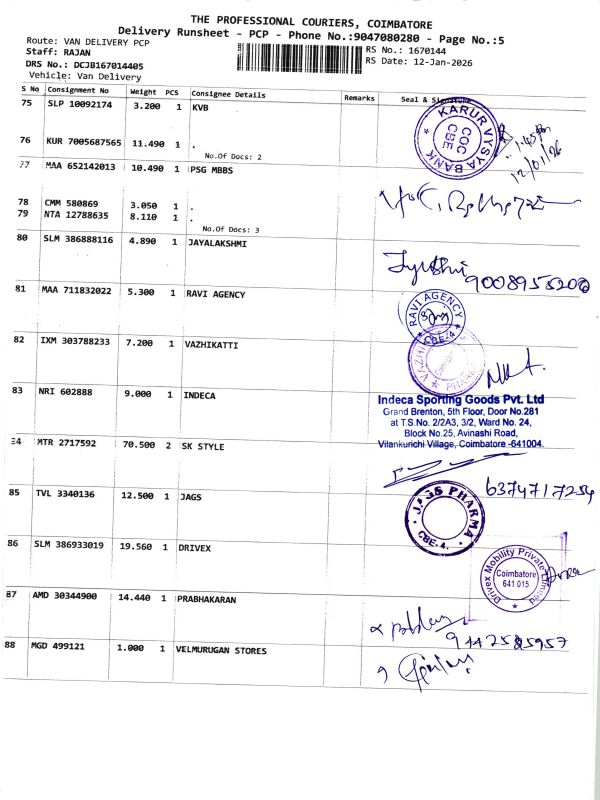 THE PROFESSIONAL COURIERS, COIMBATORE
Delivery Runsheet - PCP - Phone No.:9047080280 - Page No.:5
Route: VAN DELIVERY PCP
RS No.: 1670144
Staff: RAJAN
RS Date: 12-Jan-2026
DRS No.: DCJB167014405
Vehicle: Van Delivery
S No Consignment No Weight PCS Consignee Details Remarks Seal & Signature
75 SLP 10092174 3.200 1 KVB
KARUR VYSYA BANK
COC
CBE
12/01/26
76 KUR 7005687565 11.490 1 .
No.Of Docs: 2
77 MAA 652142013 10.490 1 PSG MBBS
78 CMM 580869 3.050 1 .
79 NTA 12788635 8.110 1 .
No.Of Docs: 3
80 SLM 386888116 4.890 1 JAYALAKSHMI
81 MAA 711832022 5.300 1 RAVI AGENCY
RAVI AGENCY
CBE-4
82 IXM 303788233 7.200 1 VAZHIKATTI
83 NRI 602888 9.000 1 INDECA
Indeca Sporting Goods Pvt. Ltd
Grand Brenton, 5th Floor, Door No.281
at T.S.No. 2/2A3, 3/2, Ward No. 24,
Block No.25, Avinashi Road,
Vilankurichi Village, Coimbatore -641004.
84 MTR 2717592 70.500 2 SK STYLE
6374717254
85 TVL 3340136 12.500 1 JAGS
JAGS PHARMA
CBE-4.
86 SLM 386933019 19.560 1 DRIVEX
Drivex Mobility Private Limited
Coimbatore
641 015
87 AMD 30344900 14.440 1 PRABHAKARAN
88 MGD 499121 1.000 1 VELMURUGAN STORES